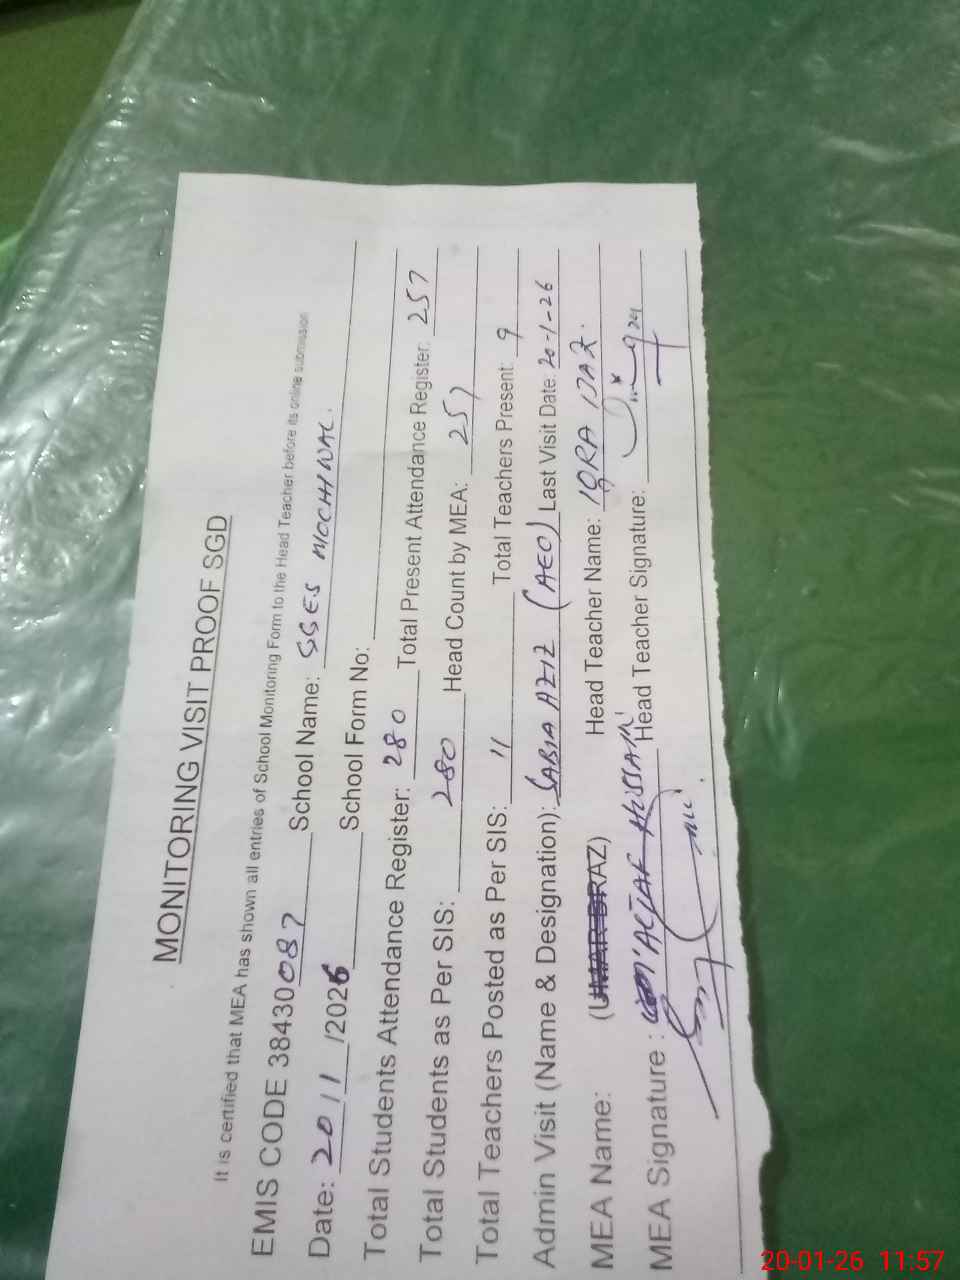 MONITORING VISIT PROOF SGD
It is certified that MEA has shown all entries of School Monitoring Form to the Head Teacher before its online submission
EMIS CODE 38430087 School Name: GGES MOCHIWAL.
Date: 20/1/2026 School Form No:
Total Students Attendance Register: 280 Total Present Attendance Register: 257
Total Students as Per SIS: 280 Head Count by MEA: 257
Total Teachers Posted as Per SIS: 11 Total Teachers Present: 9
Admin Visit (Name & Designation): SABIA AZIZ (AEO) Last Visit Date: 20-1-26
MEA Name: (UMAR DRAZ) Head Teacher Name: IQRA IJAZ.
MEA Signature: HUSSAIN Head Teacher Signature:
20-01-26 11:57